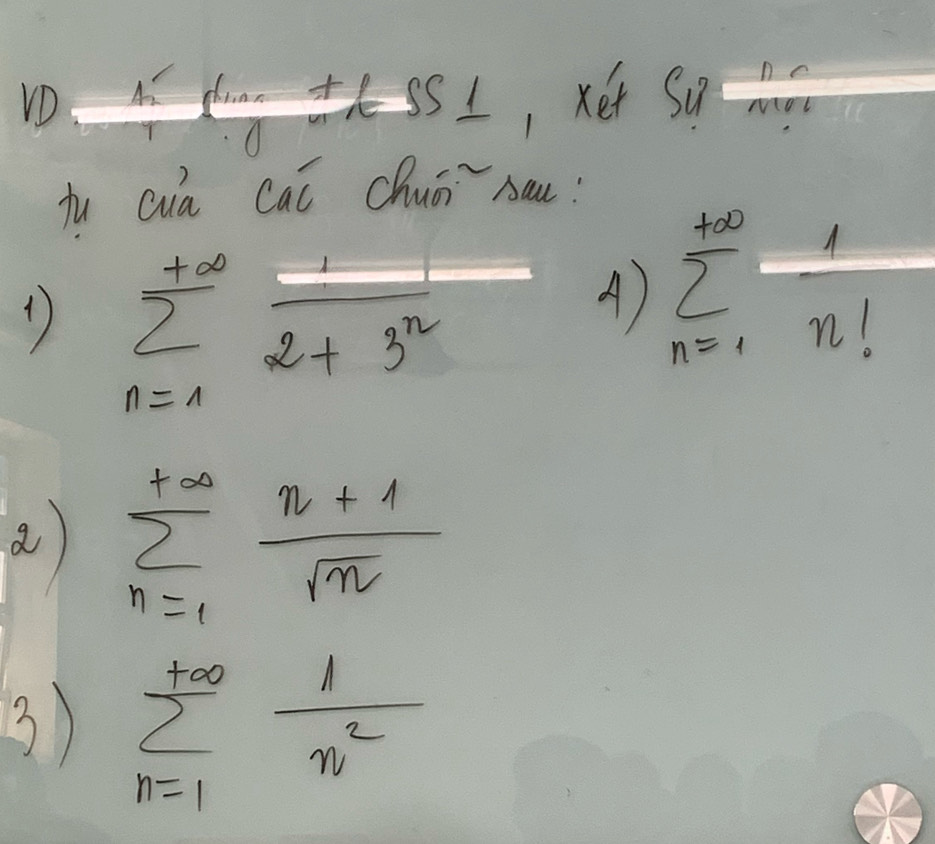 VD. Áp dụng đ.l SS 1, xét sự hội
tụ của các chuỗi sau:
1) +∞ ∑ n=1 1 / (2 + 3^n)
4) +∞ ∑ n=1 1 / n!
2) +∞ ∑ n=1 (n + 1) / √n
3) +∞ ∑ n=1 1 / n²